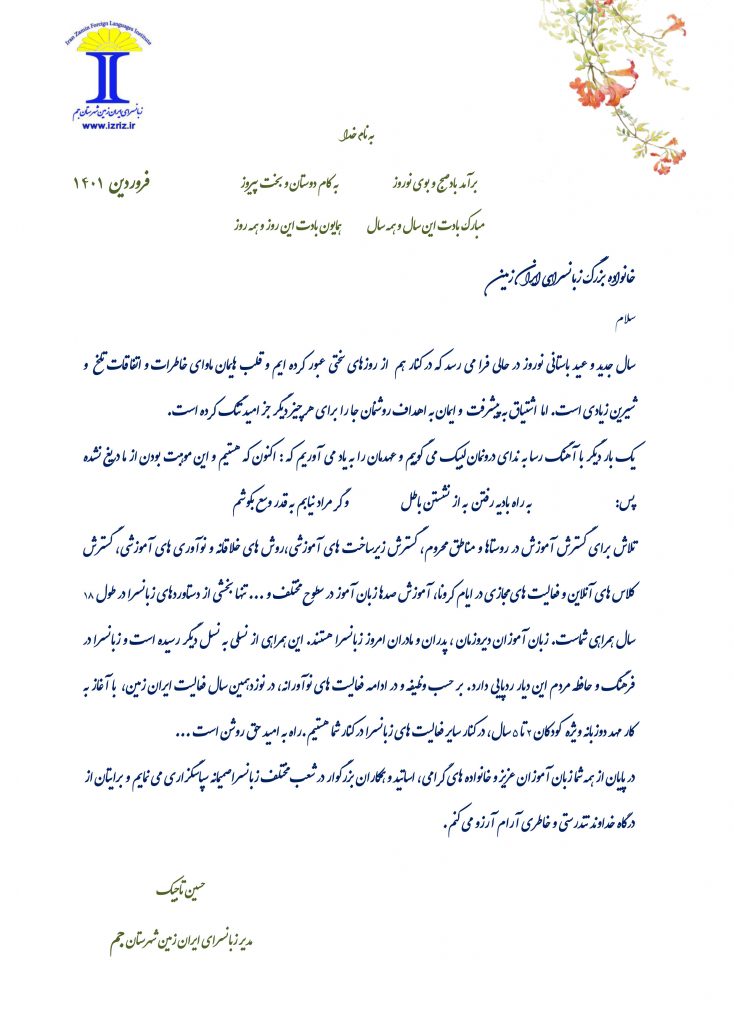 Iran Zamin Foreign Languages Institute
زبانسرای ایران زمین شهرستان جم
www.izriz.ir
به نام خدا
برآمد باد صبح و بوی نوروز به کام دوستان و بخت پیروز فروردین ۱۴۰۱
مبارک بادت این سال و همه سال همایون بادت این روز و همه روز
خانواده بزرگ زبانسرای ایران زمین
سلام
سال جدید و عید باستانی نوروز در حالی فرا می رسد که در کنار هم از روزهای سختی عبور کرده ایم و قلب هایمان ماوای خاطرات و اتفاقات تلخ و
شیرین زیادی است. اما اشتیاق به پیشرفت و ایمان به اهداف روشنمان جا را برای هر چیز دیگر جز امید تنگ کرده است.
یک بار دیگر با آهنگ رسا به ندای درونمان لبیک می گوییم و عهدمان را به یاد می آوریم که: اکنون که هستیم و این موهبت بودن از ما دریغ نشده
پس: به راه بادیه رفتن به از نشستن باطل وگر مراد نیابم به قدر وسع بکوشم
تلاش برای گسترش آموزش در روستاها و مناطق محروم، گسترش زیرساخت های آموزشی،روش های خلاقانه و نوآوری های آموزشی، گسترش
کلاس های آنلاین و فعالیت های مجازی در ایام کرونا، آموزش صدها زبان آموز در سطوح مختلف و ... تنها بخشی از دستاوردهای زبانسرا در طول ۱۸
سال همراهی شماست. زبان آموزان دیروزمان ، پدران و مادران امروز زبانسرا هستند. این همراهی از نسلی به نسل دیگر رسیده است و زبانسرا در
فرهنگ و حافظه مردم این دیار ردپایی دارد. بر حسب وظیفه و در ادامه فعالیت های نوآورانه، در نوزدهمین سال فعالیت ایران زمین، با آغاز به
کار مهد دوزبانه ویژه کودکان ۲ تا ۵ سال، در کنار سایر فعالیت های زبانسرا در کنار شما هستیم.راه به امید حق روشن است ...
در پایان از همه شما زبان آموزان عزیز و خانواده های گرامی، اساتید و همکاران بزرگوار در شعب مختلف زبانسرا صمیمانه سپاسگزاری می نمایم و برایتان از
درگاه خداوند تندرستی و خاطری آرام آرزو می کنم.
حسین تاجیک
مدیر زبانسرای ایران زمین شهرستان جم